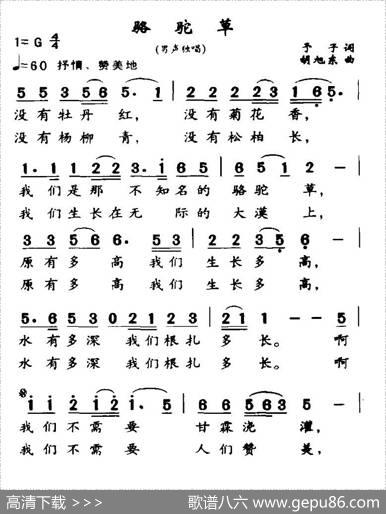 骆驼草
1=G 4/4
(男声独唱)
予子 词
♩=60 抒情、赞美地
胡旭东 曲
5 5 3 5 6 5· 1 | 2 2 2 3 1 6 5· |
没有牡丹红， 没有菊花香，
没有杨柳青， 没有松柏长，
1· 1 1 2 2 3· i 6 5 | 6 5 1 2 — |
我们是那不知名的骆驼草，
我们生长在无际的大漠上，
3 3 5 6 6· 5 3 | 2 2 2 3 5 6 — |
原有多高我们生长多高，
原有多高我们生长多高，
5· 6 3 5 0 2 1 2 3 | 2 1 1 — — 5 |
水有多深我们根扎多长。啊
水有多深我们根扎多长。啊
i i 2 i 2 i· 5 | 6 6 5 6 3 5 — |
我们不需要甘霖浇灌，
我们不需要人们赞美，
高清下载 >>>
歌谱八六 www.gepu86.com